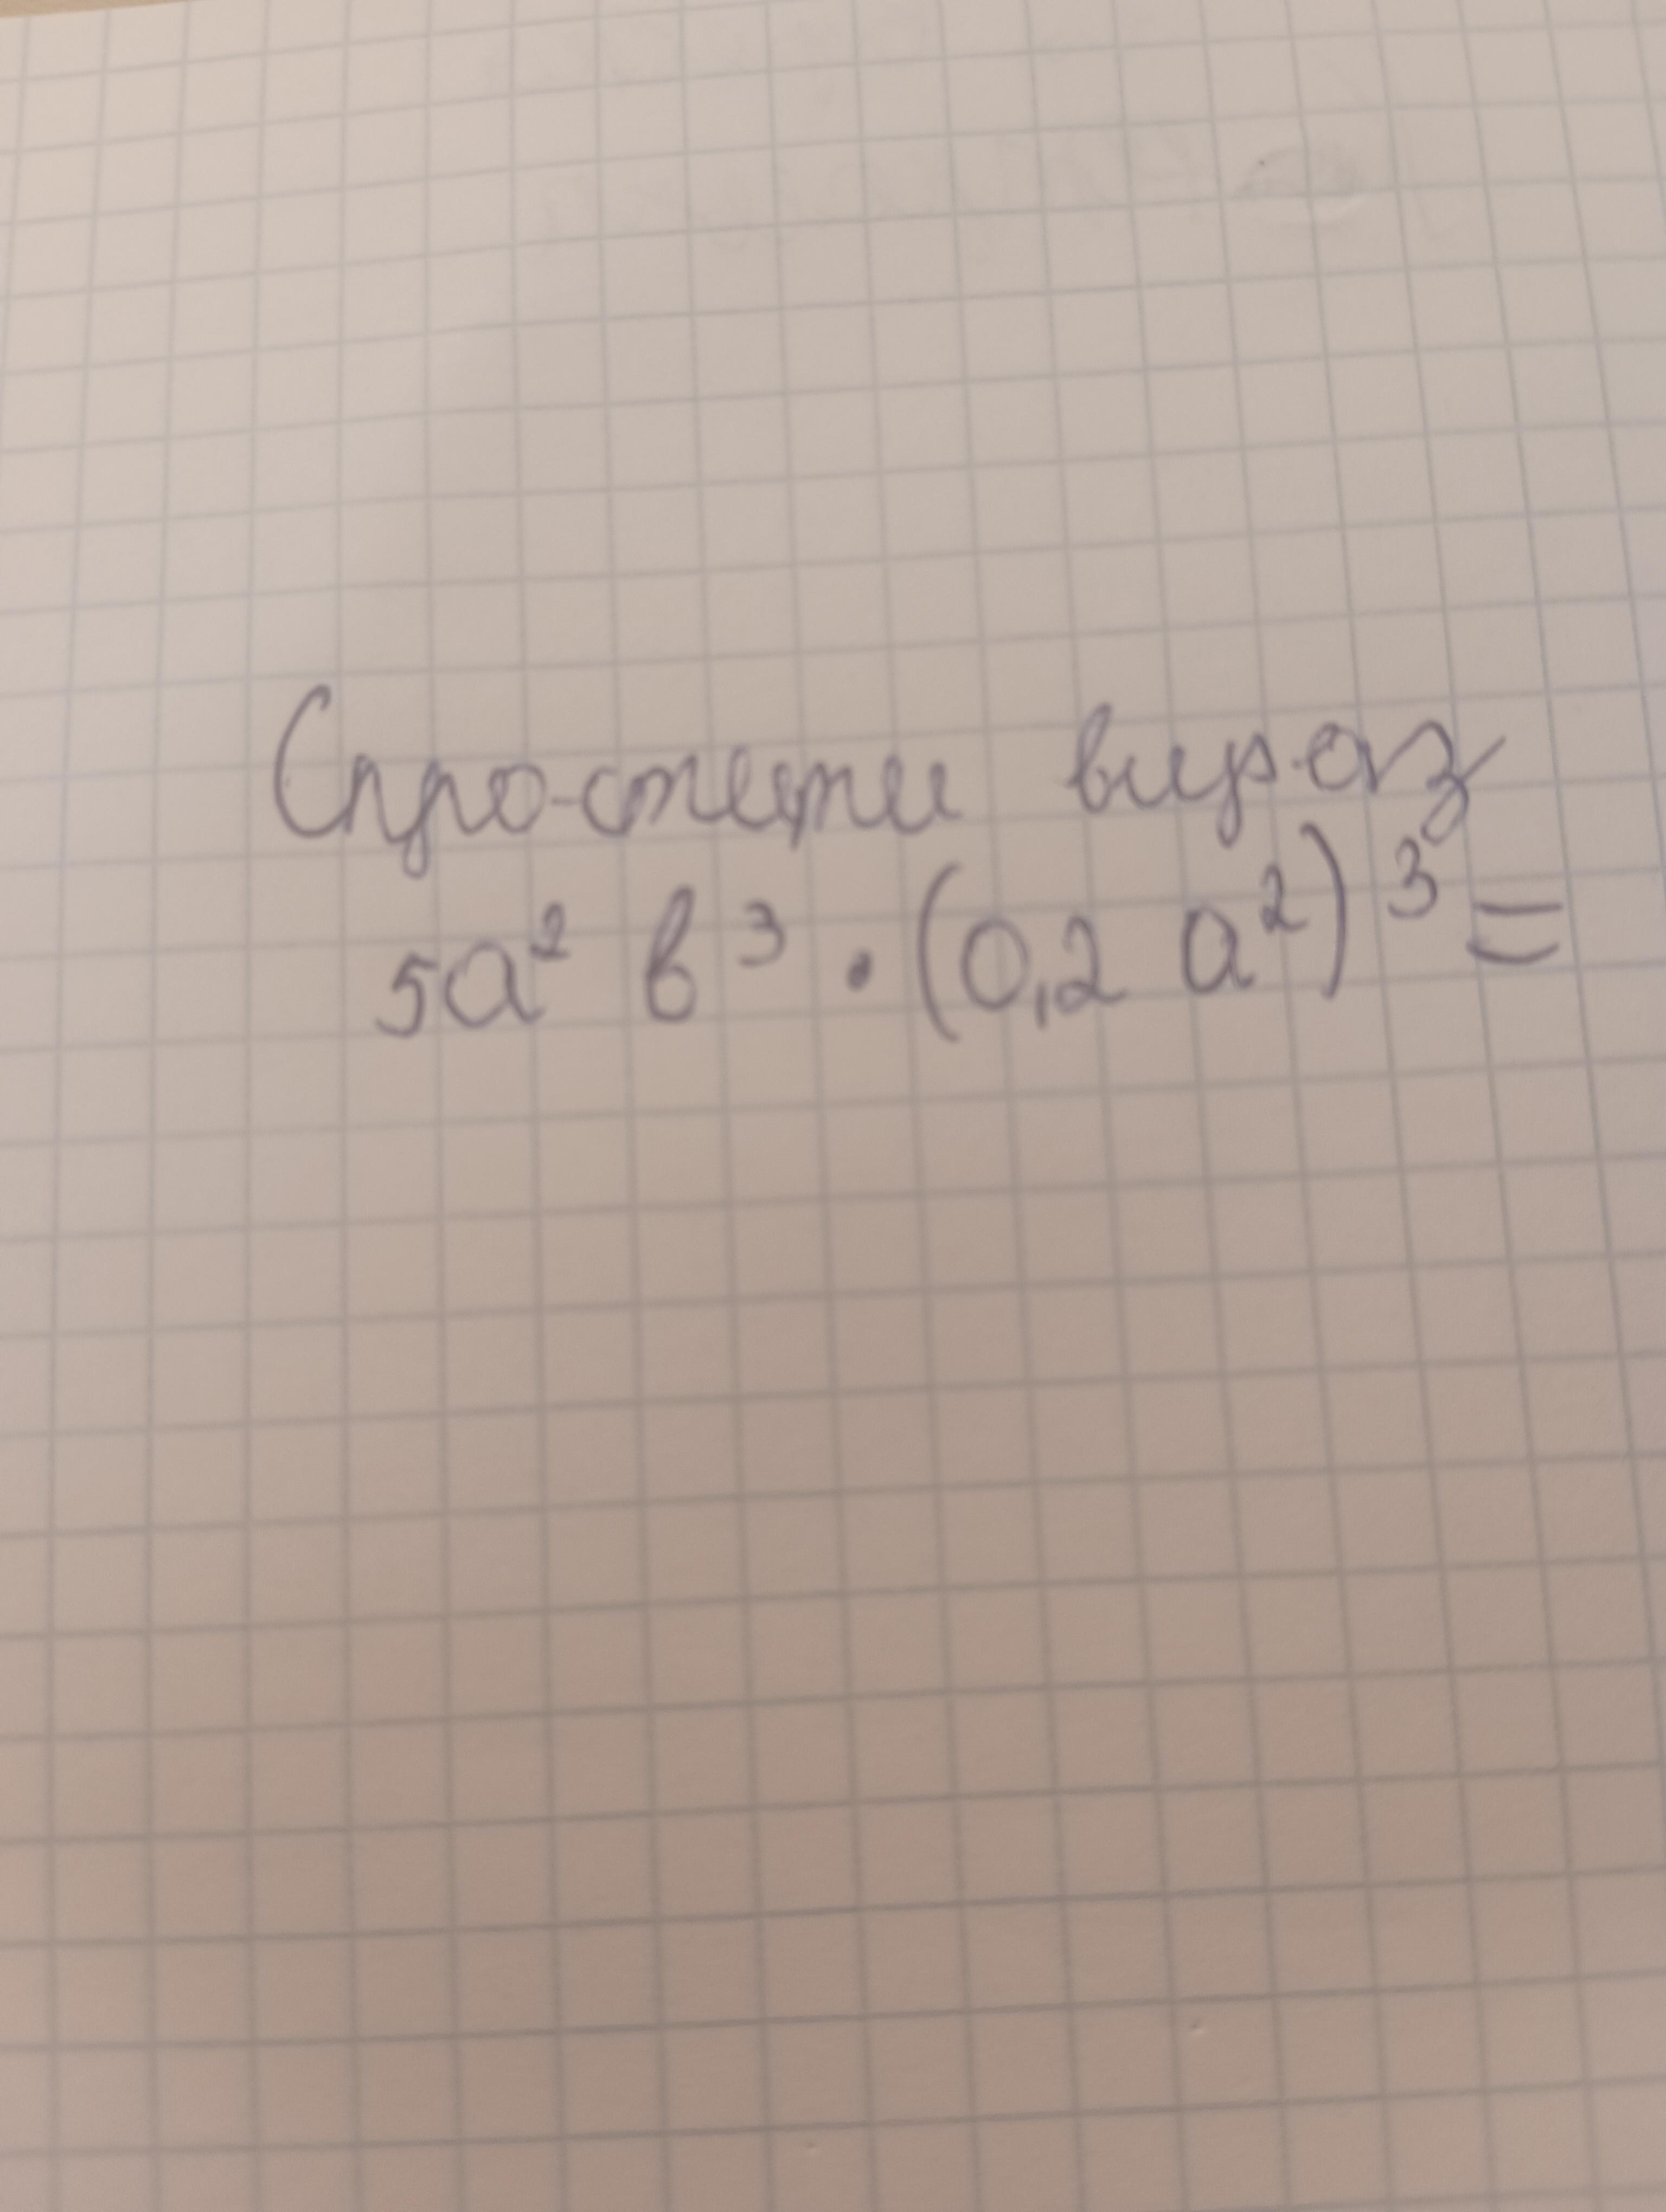 Спростити вираз
5a² b³ · (0,2 a²)³ =